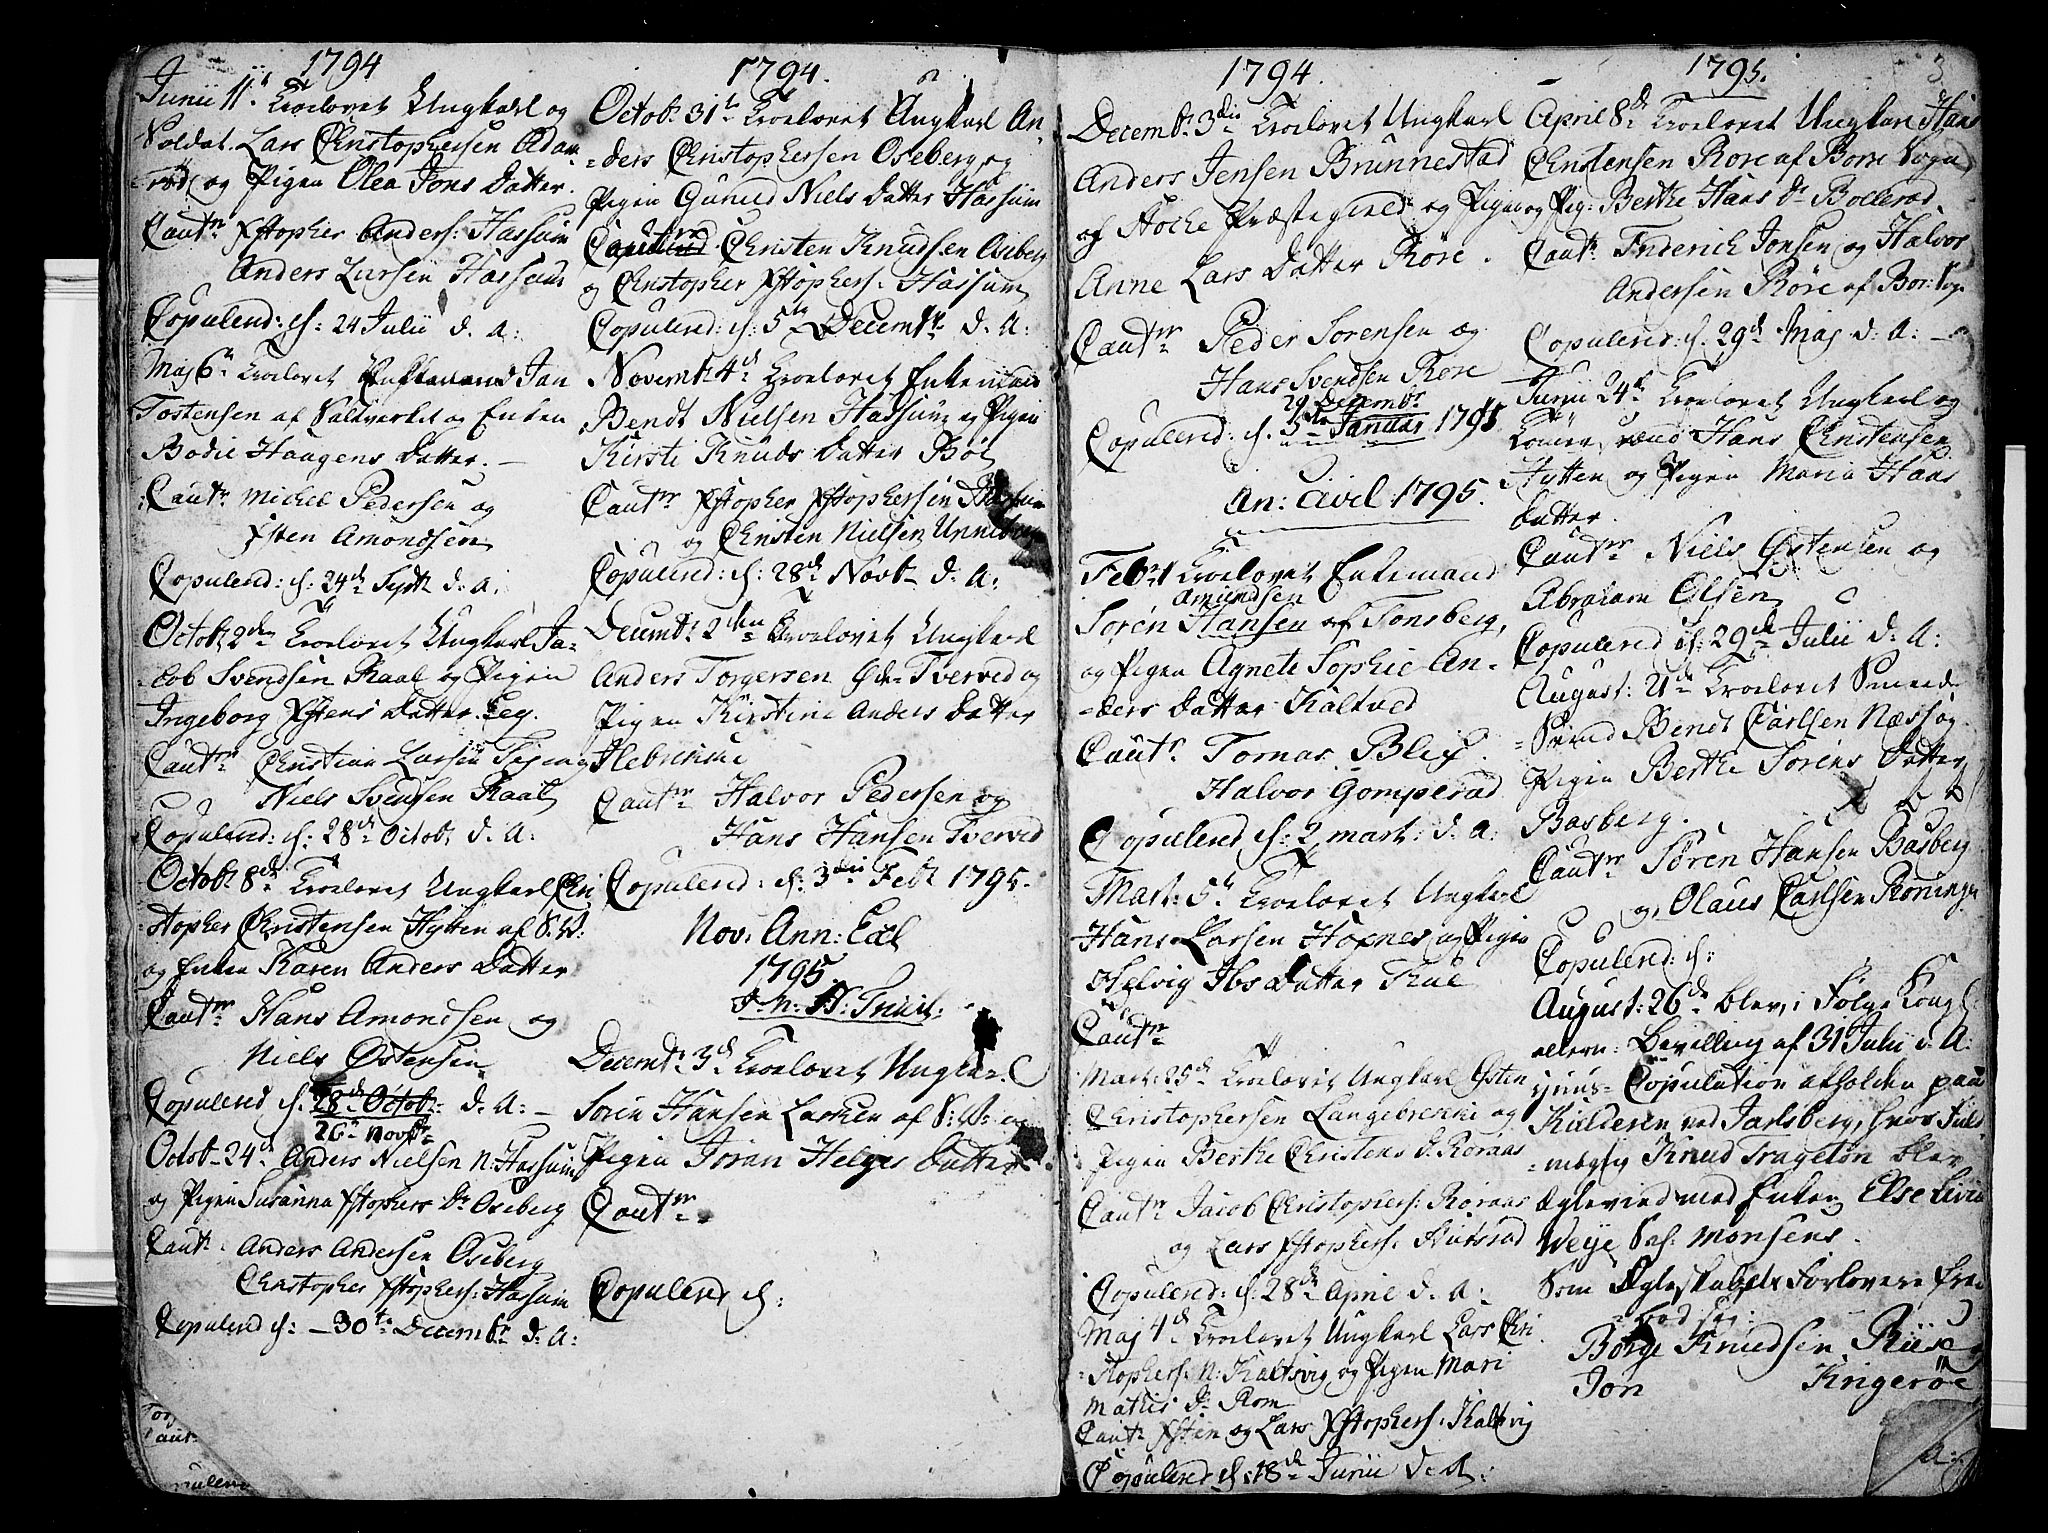 1794
Junii 11. Troelovet Ungkarl og
Soldat. Lars Christophersen Adam-
=rød og Pigen Olea Jons Datter.
Cautr Xstopher Anders: Hassum
Anders Larsen Hassum
Copulerd: d: 24 Julii d. A:
Maj 6 Troelovet Jan
Tostensen af Saltverket og Enken
Bodil Haagens Datter. —
Cautr Michel Pedersen og
Xsten Amondsen
Copulerd: d: 24de Septb d. A:
Octobr 2den Troelovet Ungkarl Ja-
=cob Svendsen Raal og Pigen
Ingeborg Xstens Datter Eeg.
Cautr Christian Larsen
Niels Svendsen Raal
Copulerd: d: 28de Octob: d. A:
Octob 8de Troelovet Ungkarl Chri
stopher Christensen Hytten af S. W:
og Enken Karen Anders Datter
Cautrr Hans Amondsen og
Niels Østensen
Copulerd d. 28de Octob: d. A: —
26 Novbr
Octob. 24de Anders Nielsen N: Hassum
og Pigen Susanna Xstophers Dr Oseberg
Caut: Anders Andersen Oseberg
Christopher Xstophers: Hassum
Copulerd d: — 30te Decembr d: A:
1794.
Octob: 31te Troelovet Ungkarl An-
=ders Christophersen Oseberg og
Pigen Guned Niels Datter Hassum
Copulerd Christen Knudsen Oseberg
og Christopher Xstophers: Hassum
Copulerd: d: 5te Decembr d. A:
Novembr 4de Troelovet Enkemand
Bendt Nielsen Hassum og Pigen
Kirsti Knuds Datter Bøe
Cautrr Xstopher Xstophersen
og Christen Nielsen
Copulerd: d: 28de Novb. d. A:
Decembr: 2den Troelovet Ungkarl
Anders Torgersen Tverved og
Pigen Kirstine Anders Datter
Slebrinne
Cautrr Halvor Pedersen og
Hans Hansen Tverved
Copulerd: d: 3die Feb: 1795.
Nov: Ann: Eccl
1795
Decemb: 3de Troelovet Ungkar.
Sören Hansen Larken af S: W: og
Pigen Joran Helges Datter
Cautrr
Copulerd d:
1794.
Decemb: 3die Troelovet Ungkarl
Anders Jensen Brunnestad
af Stocke Præstegield og Pigen
Anne Lars Datter Røre.
Cautrr Peder Sorensen og
Hans Svendsen Røre
29 Decembr
Copulerd: d. 5te Januar 1795
An: Civil 1795.
Febr: 1 Troelovet Enkemand
Amundsen
Soren Hansen af Tonsberg,
og Pigen Agnete Sophie An-
=ders Datter Kaltved
Cautr Tomas Blix
Halvor Gomperød
Copulerd d: 2 mart: d. A:
Mart: 5te Troelovet Ungkarl
Hans Larsen Hopnes og Pigen
Helvig Ibs Datter
Cautr
Mart: 25de Troelovet Ungkarl Østen
Christophersen Langebrenne og
Pigen Berthe Christens D. Roraas
Cautr Jacob Christophers: Roraas
og Lars Xstophers:
Copulerd: d: 28de April d. A:
Maj 4de Troelovet Ungkarl Lars Chri
=stophers: N: Kaltsvig og Pigen Mari
Mathis Dr Rom
Cautr Xsten og Lars Xstophers: Kaltsvig
Copulerd d: 18de Junii d. A:
1795.
April 8de Troelovet Ungkarl Hans
Christensen Røre af Borre Sogn
og Pig: Berthe Hans Dr Bollerød.
Cautr Friderich Jonsen og Halvor
Andersen Røre af Bor: Sog
Copulerd: d. 29de Maj d: A: —
Junii 24de Troelovet Ungkarl og
Hans Christensen
Hytten og Pigen Maria Hans
Datter.
Cautrr Niels Østensen og
Abraham Olsen
Copulerd d: 29de Julii d. A:
August: 21de Troelovet Smeede
=Svend Bendt Carlsen Næss og
Pigen Berthe Sörens Datter
Basberg.
Cautrr Sören Hansen Basberg
og Olaus Carlsen Røninge
Copulerd: d:
August: 26de blev i Følge Kongl
allern: Bevilling af 31 Julii d. A:
Copulation afholden paa
ved Jarlsberg, hvor Fuld
=mægtig Knud Trageton blev
ægteviet med Enken Else Livia
Weÿe Sal: Monsens.
Som Ægteskabets Forlovere fre-
=mstod sig:
Borge Knudsen Riise og
Jon Kringeröe